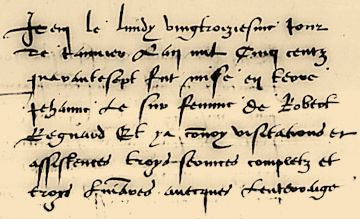 Item le lundy vingtroiziesme jour
de Janvier l'an mil cinq centz
quarante sept fut mise en terre
Jehanne Le sur femme de Robert
Regnard Et ya convoy visitations et
assistences troys services completz et
troys avecques